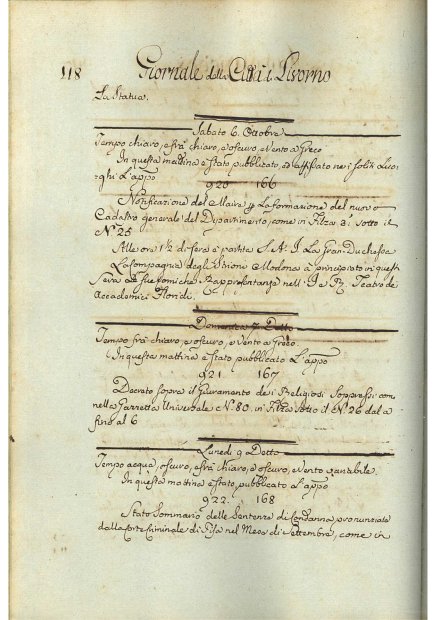 118 Giornale della Città di Livorno
La Statua.
Sabato 6. Ottobre
Tempo chiaro, e frà chiaro, e oscuro, e Vento a Greco
In questa mattina è stato pubblicato, ed affissato nei soliti Luo-
ghi L'appo
920 166
Notificazione del Maire p La formazione del nuovo
Cadastro generale del Dipartimento, come in Filza 3ª sotto il
Nº 25
Alle ore 1½ di sera è partita S. A. I. La Gran-Duchessa
La Compagnia degli Istrione Modona à principiato in questa
Sera le sue comiche Rappresentanze nell' I. e R. Teatro de
Accademici Floridi.
Domenica 7. Detto
Tempo frà chiaro, e oscuro, e Vento a Greco.
In questa mattina è stato pubblicato L'appo
921 167
Decreto sopra il Giuramento dei Religiosi Soppressi come
nella Gazzetta Universale Nº 80. in Filza sotto il Nº 26 dal a
fino al 6
Lunedì 9 Detto
Tempo acqua, oscuro, e frà chiaro, e oscuro, e Vento variabile.
In questa mattina è stato pubblicato L'appo
922. 168
Stato Sommario delle Sentenze di Condanna pronunciate
dalla Corte Criminale di Pisa nel Mese di Settembre, come in